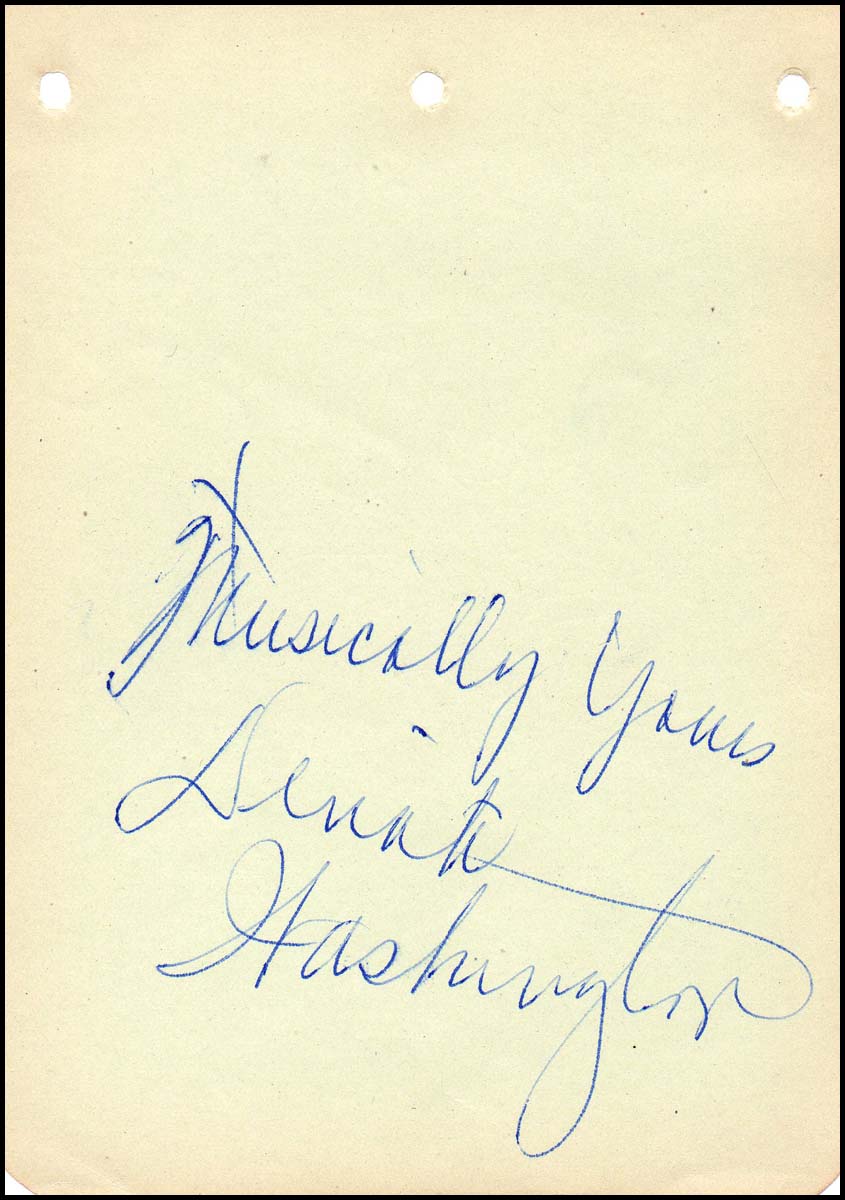 Musically Yours
Dinah
Washington